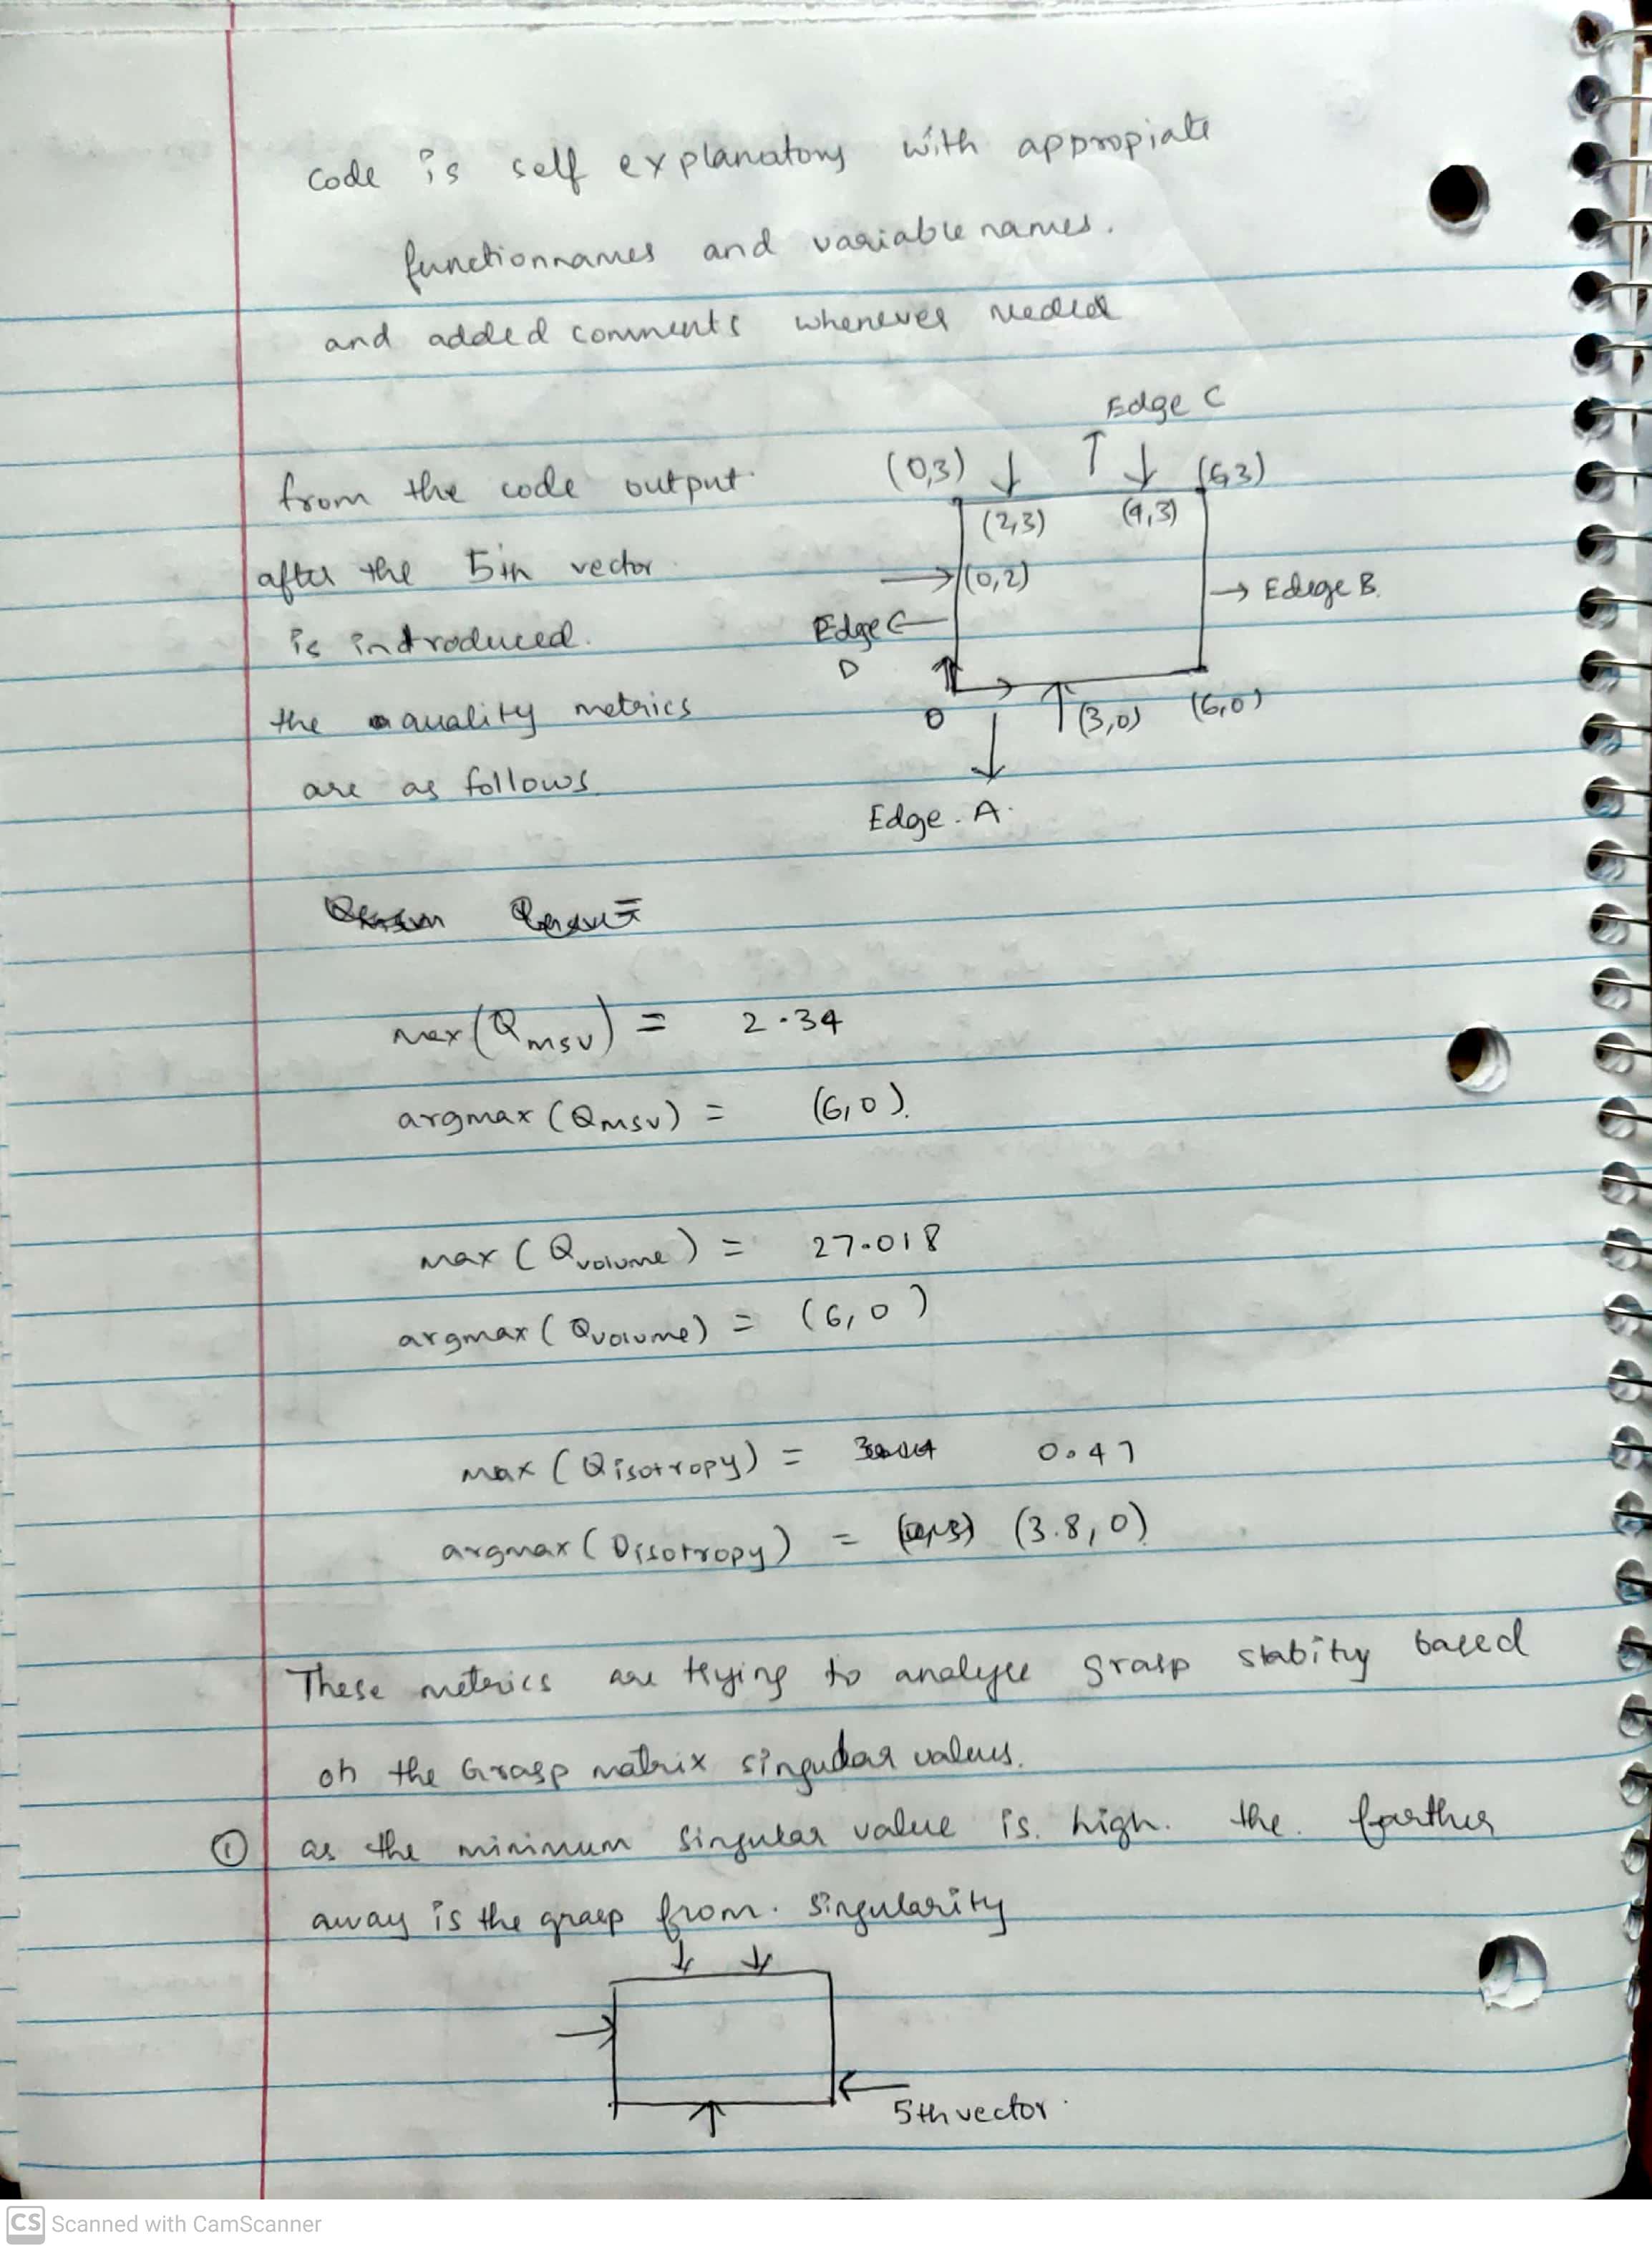 code is self explanatory with appropiate
functionnames and variable names.
and added comments whenever needed
Edge C
(0,3) (6,3)
from the code output.
(2,3) (4,3)
after the 5th vector
(0,2)
→ Edege B.
is introduced.
Edge
D
the quality metrics
0 (3,0) (6,0)
are as follows
Edge. A.
max (Qmsv) = 2.34
argmax (Qmsv) = (6,0).
max (Qvolume) = 27.018
argmax (Qvolume) = (6,0)
max (Qisotropy) = 0.47
argmax (Disotropy) = (3.8,0)
These metrics are trying to analyse grasp stabity based
on the Grasp matrix singular values.
① as the minimum singular value is. high. the. farther
away is the grasp from. singularity
5th vector.
CS Scanned with CamScanner